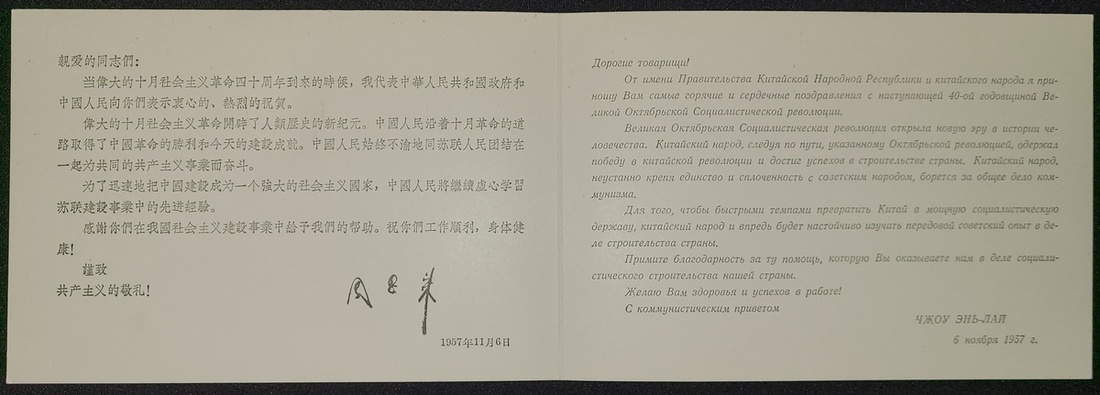 親愛的同志們:
当偉大的十月社会主义革命四十周年到來的時候,我代表中華人民共和國政府和
中國人民向你們表示衷心的、熱烈的祝賀。
偉大的十月社会主义革命開辟了人類歷史的新紀元。中國人民沿着十月革命的道
路取得了中國革命的勝利和今天的建設成就。中國人民始終不渝地同苏联人民团結在
一起为共同的共产主义事業而奋斗。
为了迅速地把中國建設成为一个強大的社会主义國家,中國人民將繼續虛心学習
苏联建設事業中的先進經驗。
感謝你們在我國社会主义建設事業中給予我們的帮助。祝你們工作順利,身体健
康!
謹致
共产主义的敬礼!
周恩來
1957年11月6日
Дорогие товарищи!
От имени Правительства Китайской Народной Республики и китайского народа я при-
ношу Вам самые горячие и сердечные поздравления с наступающей 40-ой годовщиной Ве-
ликой Октябрьской Социалистической революции.
Великая Октябрьская Социалистическая революция открыла новую эру в истории че-
ловечества. Китайский народ, следуя по пути, указанному Октябрьской революцией, одержал
победу в китайской революции и достиг успехов в строительстве страны. Китайский народ,
неустанно крепя единство и сплоченность с советским народом, борется за общее дело ком-
мунизма.
Для того, чтобы быстрыми темпами превратить Китай в мощную социалистическую
державу, китайский народ и впредь будет настойчиво изучать передовой советский опыт в де-
ле строительства страны.
Примите благодарность за ту помощь, которую Вы оказываете нам в деле социали-
стического строительства нашей страны.
Желаю Вам здоровья и успехов в работе!
С коммунистическим приветом
ЧЖОУ ЭНЬ-ЛАЙ
6 ноября 1957 г.